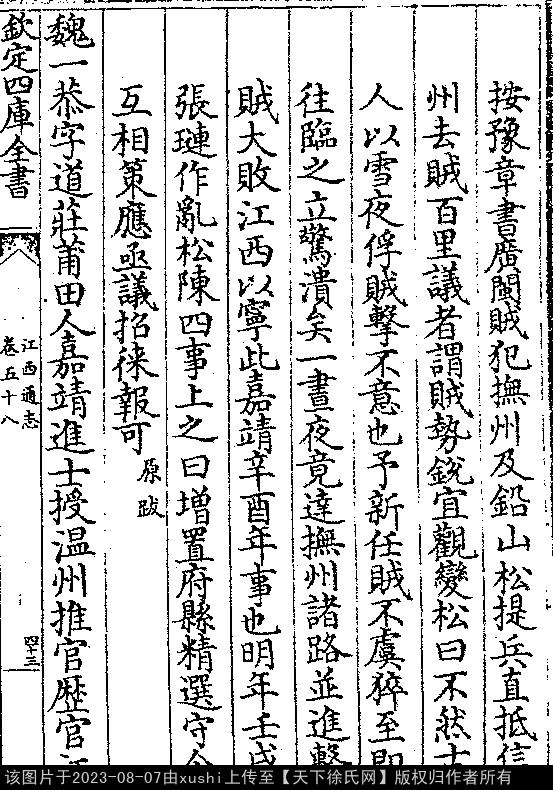 按豫章書廣閩賊犯撫州及鉛山松提兵直抵信
州去賊百里議者謂賊勢銳宜觀變松曰不然古
人以雪夜俘賊擊不意也予新任賊不虞猝至即
往臨之立驚潰矣一晝夜竟達撫州諸路並進擊
賊大敗江西以寧此嘉靖辛酉年事也明年壬戌
張璉作亂松陳四事上之曰增置府縣精選守令
互相策應亟議招徠報可原跋
魏一恭字道莊莆田人嘉靖進士授温州推官歴官江
欽定四庫全書
江西通志
卷五十八
四十三
该图片于2023-08-07由xushi上传至【天下徐氏网】版权归作者所有